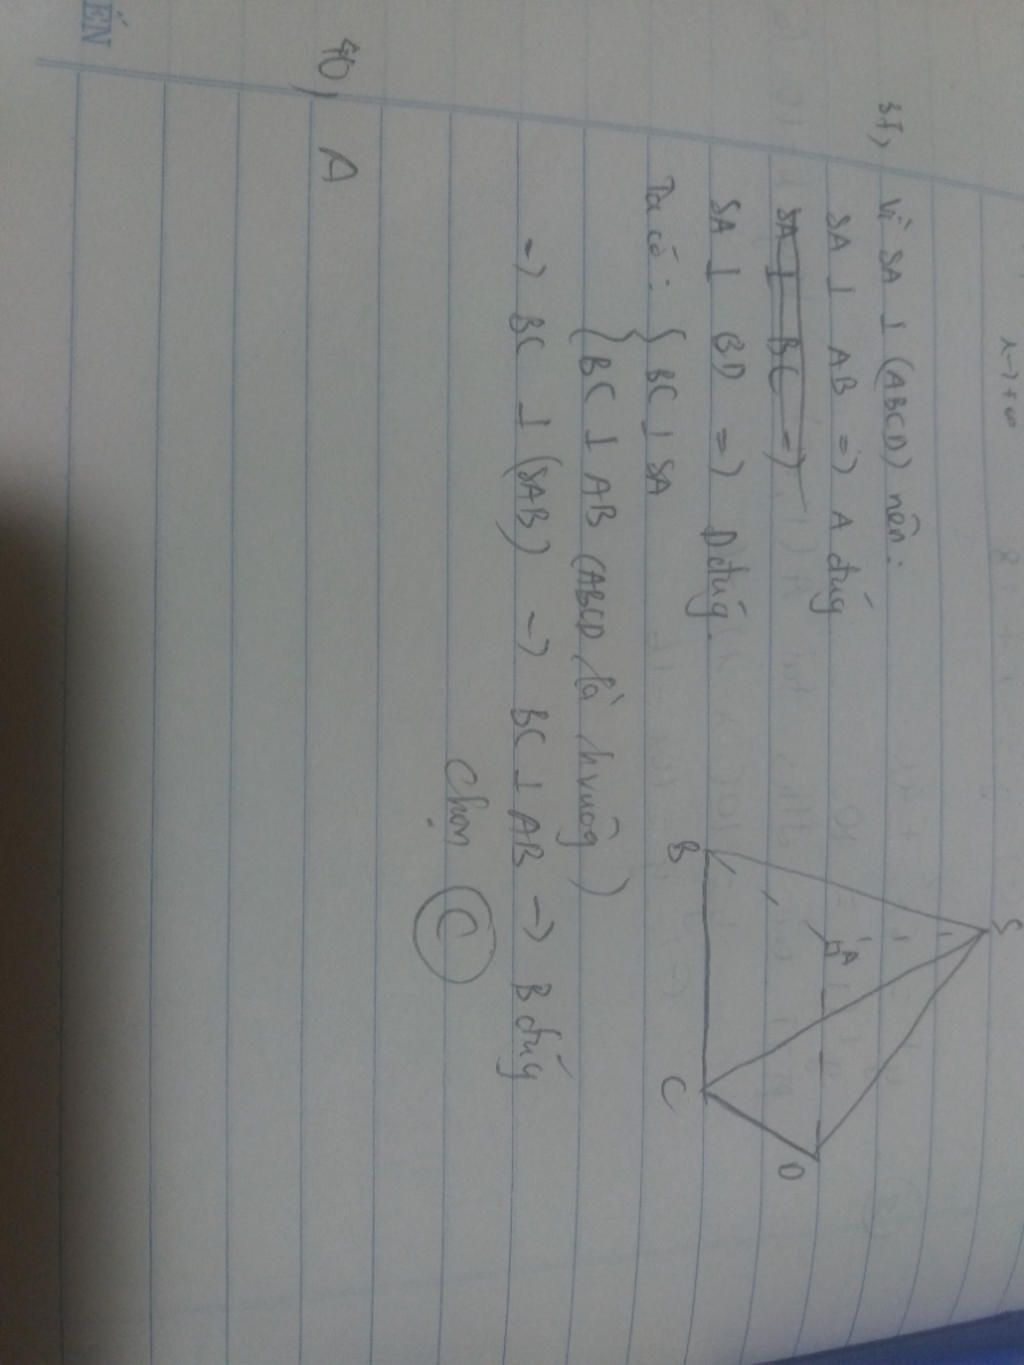 x→+∞
37, Vì SA ⊥ (ABCD) nên:
SA ⊥ AB => A đúng
SA ⊥ BC =>
SA ⊥ BD => D đúng.
Ta có: { BC ⊥ SA
{ BC ⊥ AB (ABCD là hvuông)
→ BC ⊥ (SAB) → BC ⊥ AB → B đúng
Chọn C
S
A
B
C
D
40, A
ẾN